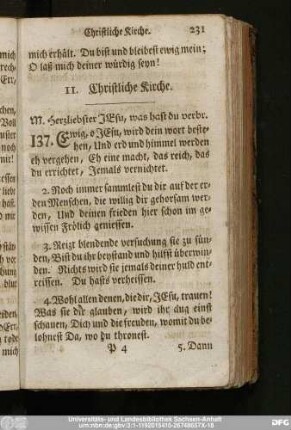 Christliche Kirche. 231
mich erhält. Du bist und bleibest ewig mein;
O laß mich deiner würdig seyn!
11. Christliche Kirche.
M. Herzliebster JEsu, was hast du verbr.
137. Ewig, o JEsu, wird dein wort beste-
hen, Und erd und himmel werden
eh vergehen, Eh eine macht, das reich, das
du errichtet, Jemals vernichtet.
2. Noch immer sammlest du dir auf der er-
den Menschen, die willig dir gehorsam wer-
den, Und deinen frieden hier schon im ge-
wissen Frölich geniessen.
3. Reizt blendende versuchung sie zu sün-
den, Bist du ihr beystand und hilfst überwin-
den. Nichts wird sie jemals deiner huld ent-
reissen. Du hasts verheissen.
4. Wohl allen denen, die dir, JEsu, trauen!
Was sie dir glauben, wird ihr aug einst
schauen, Dich und die freuden, womit du be-
lohnest Da, wo du thronest.
P 4 5. Dann
Universitäts- und Landesbibliothek Sachsen-Anhalt